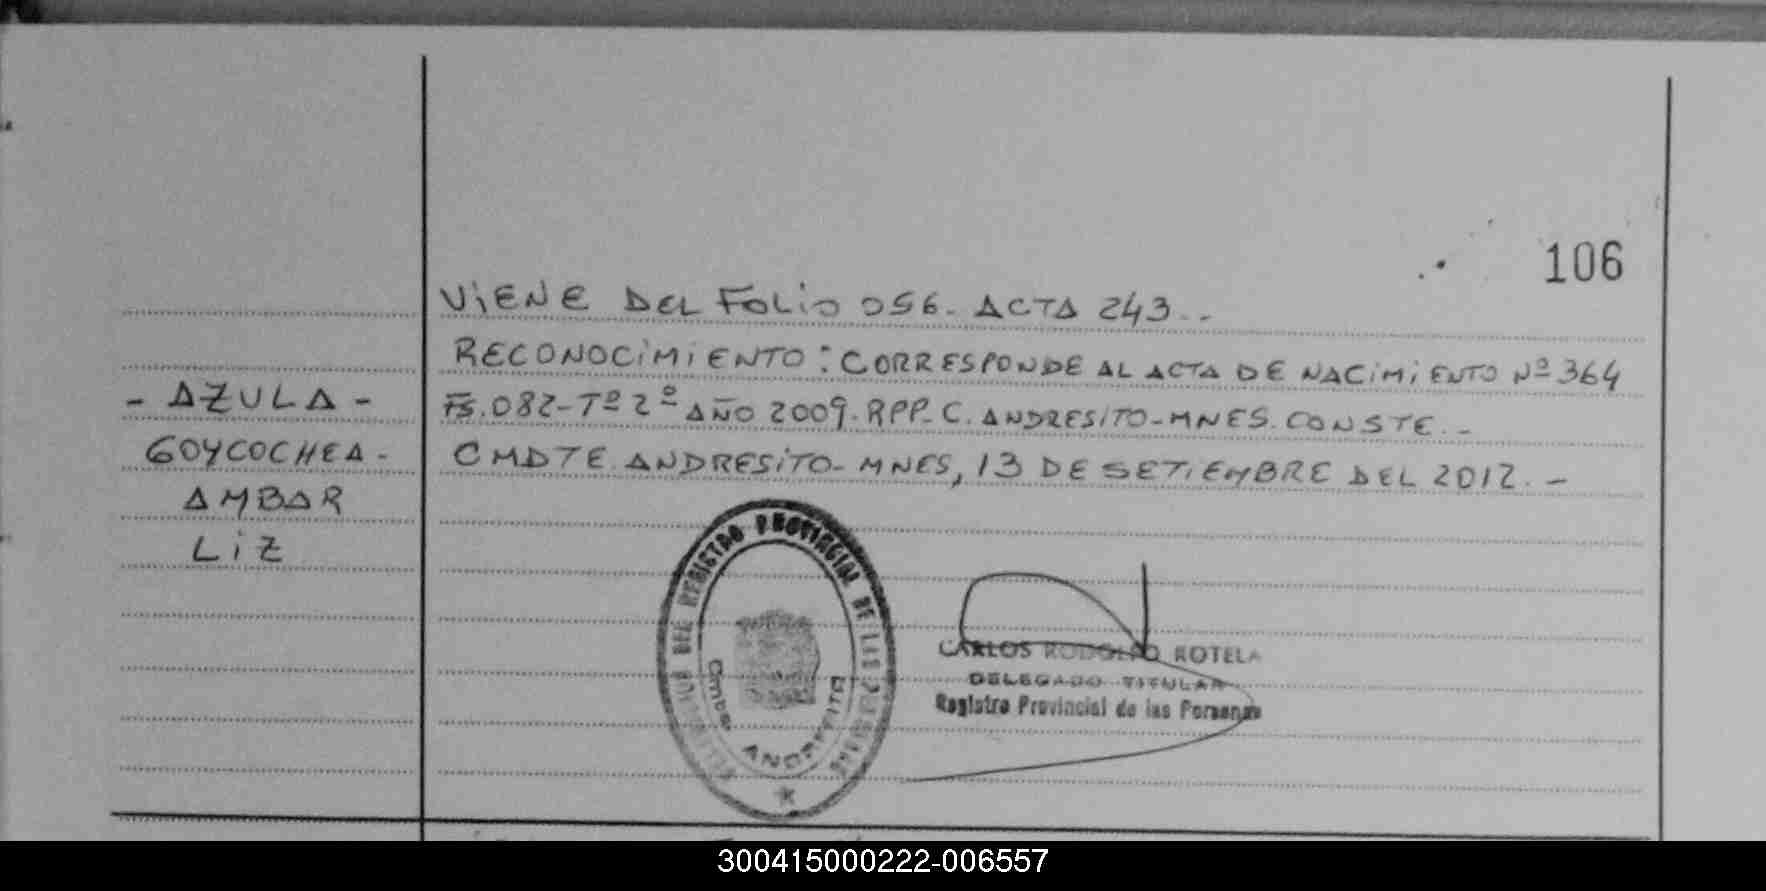 106
VIENE DEL FOLIO 056. ACTA 243..
RECONOCIMIENTO: CORRESPONDE AL ACTA DE NACIMIENTO Nº 364
- AZULA -
FS. 082-Tº 2º AÑO 2009. RPP-C. ANDRESITO-MNES. CONSTE.-
GOYCOCHEA-
CMDTE. ANDRESITO-MNES, 13 DE SETIEMBRE DEL 2012.-
AMBAR
LIZ
REGISTRO PROVINCIAL DE LAS
ANDRESITO
CARLOS RODOLFO ROTELA
DELEGADO TITULAR
Registro Provincial de las Personas
300415000222-006557